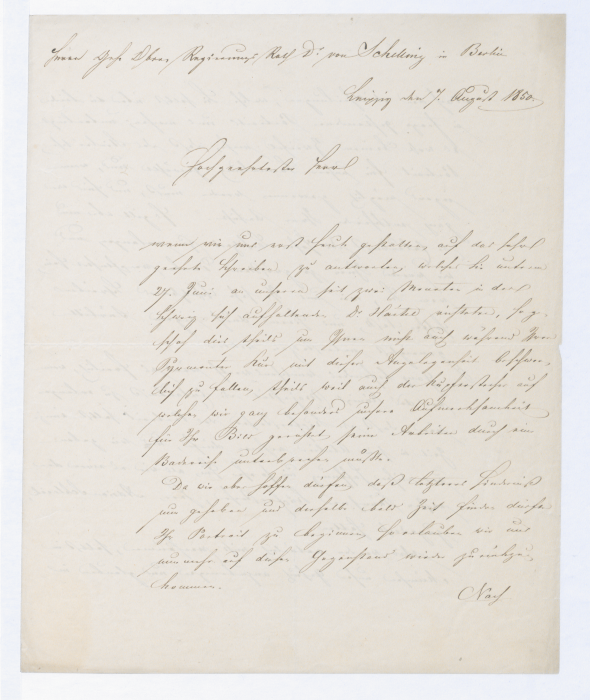 Herrn Geh. Ober Regierungs Rath Dr von Schelling in Berlin
Leipzig den 7. August 1850.
Hochgeehrtester Herr!
wenn wir uns erst heute gestatten, auf das sehr
geehrte Schreiben zu antworten, welches Sie unterm
27. Juni an unseren seit zwei Monaten in der
Schweiz sich aufhaltenden Dr. Härtel richteten, so ge-
schah dies theils um Ihnen nicht auch während Ihrer
Pyrmonter Kur mit dieser Angelegenheit beschwer-
lich zu fallen, theils weil auch der Kupferstecher auf
welchen wir ganz besonders unsere Aufmerksamkeit
für Ihr Bild gerichtet, seine Arbeiten durch eine
Badereise unterbrechen mußte.
Da wir aber hoffen dürfen, daß letzteres Hinderniß
nun gehoben und derselbe bald Zeit finden dürfte
Ihr Portrait zu beginnen, so erlauben wir uns
nunmehr auf diesen Gegenstand wieder zurückzu-
kommen.
Nach